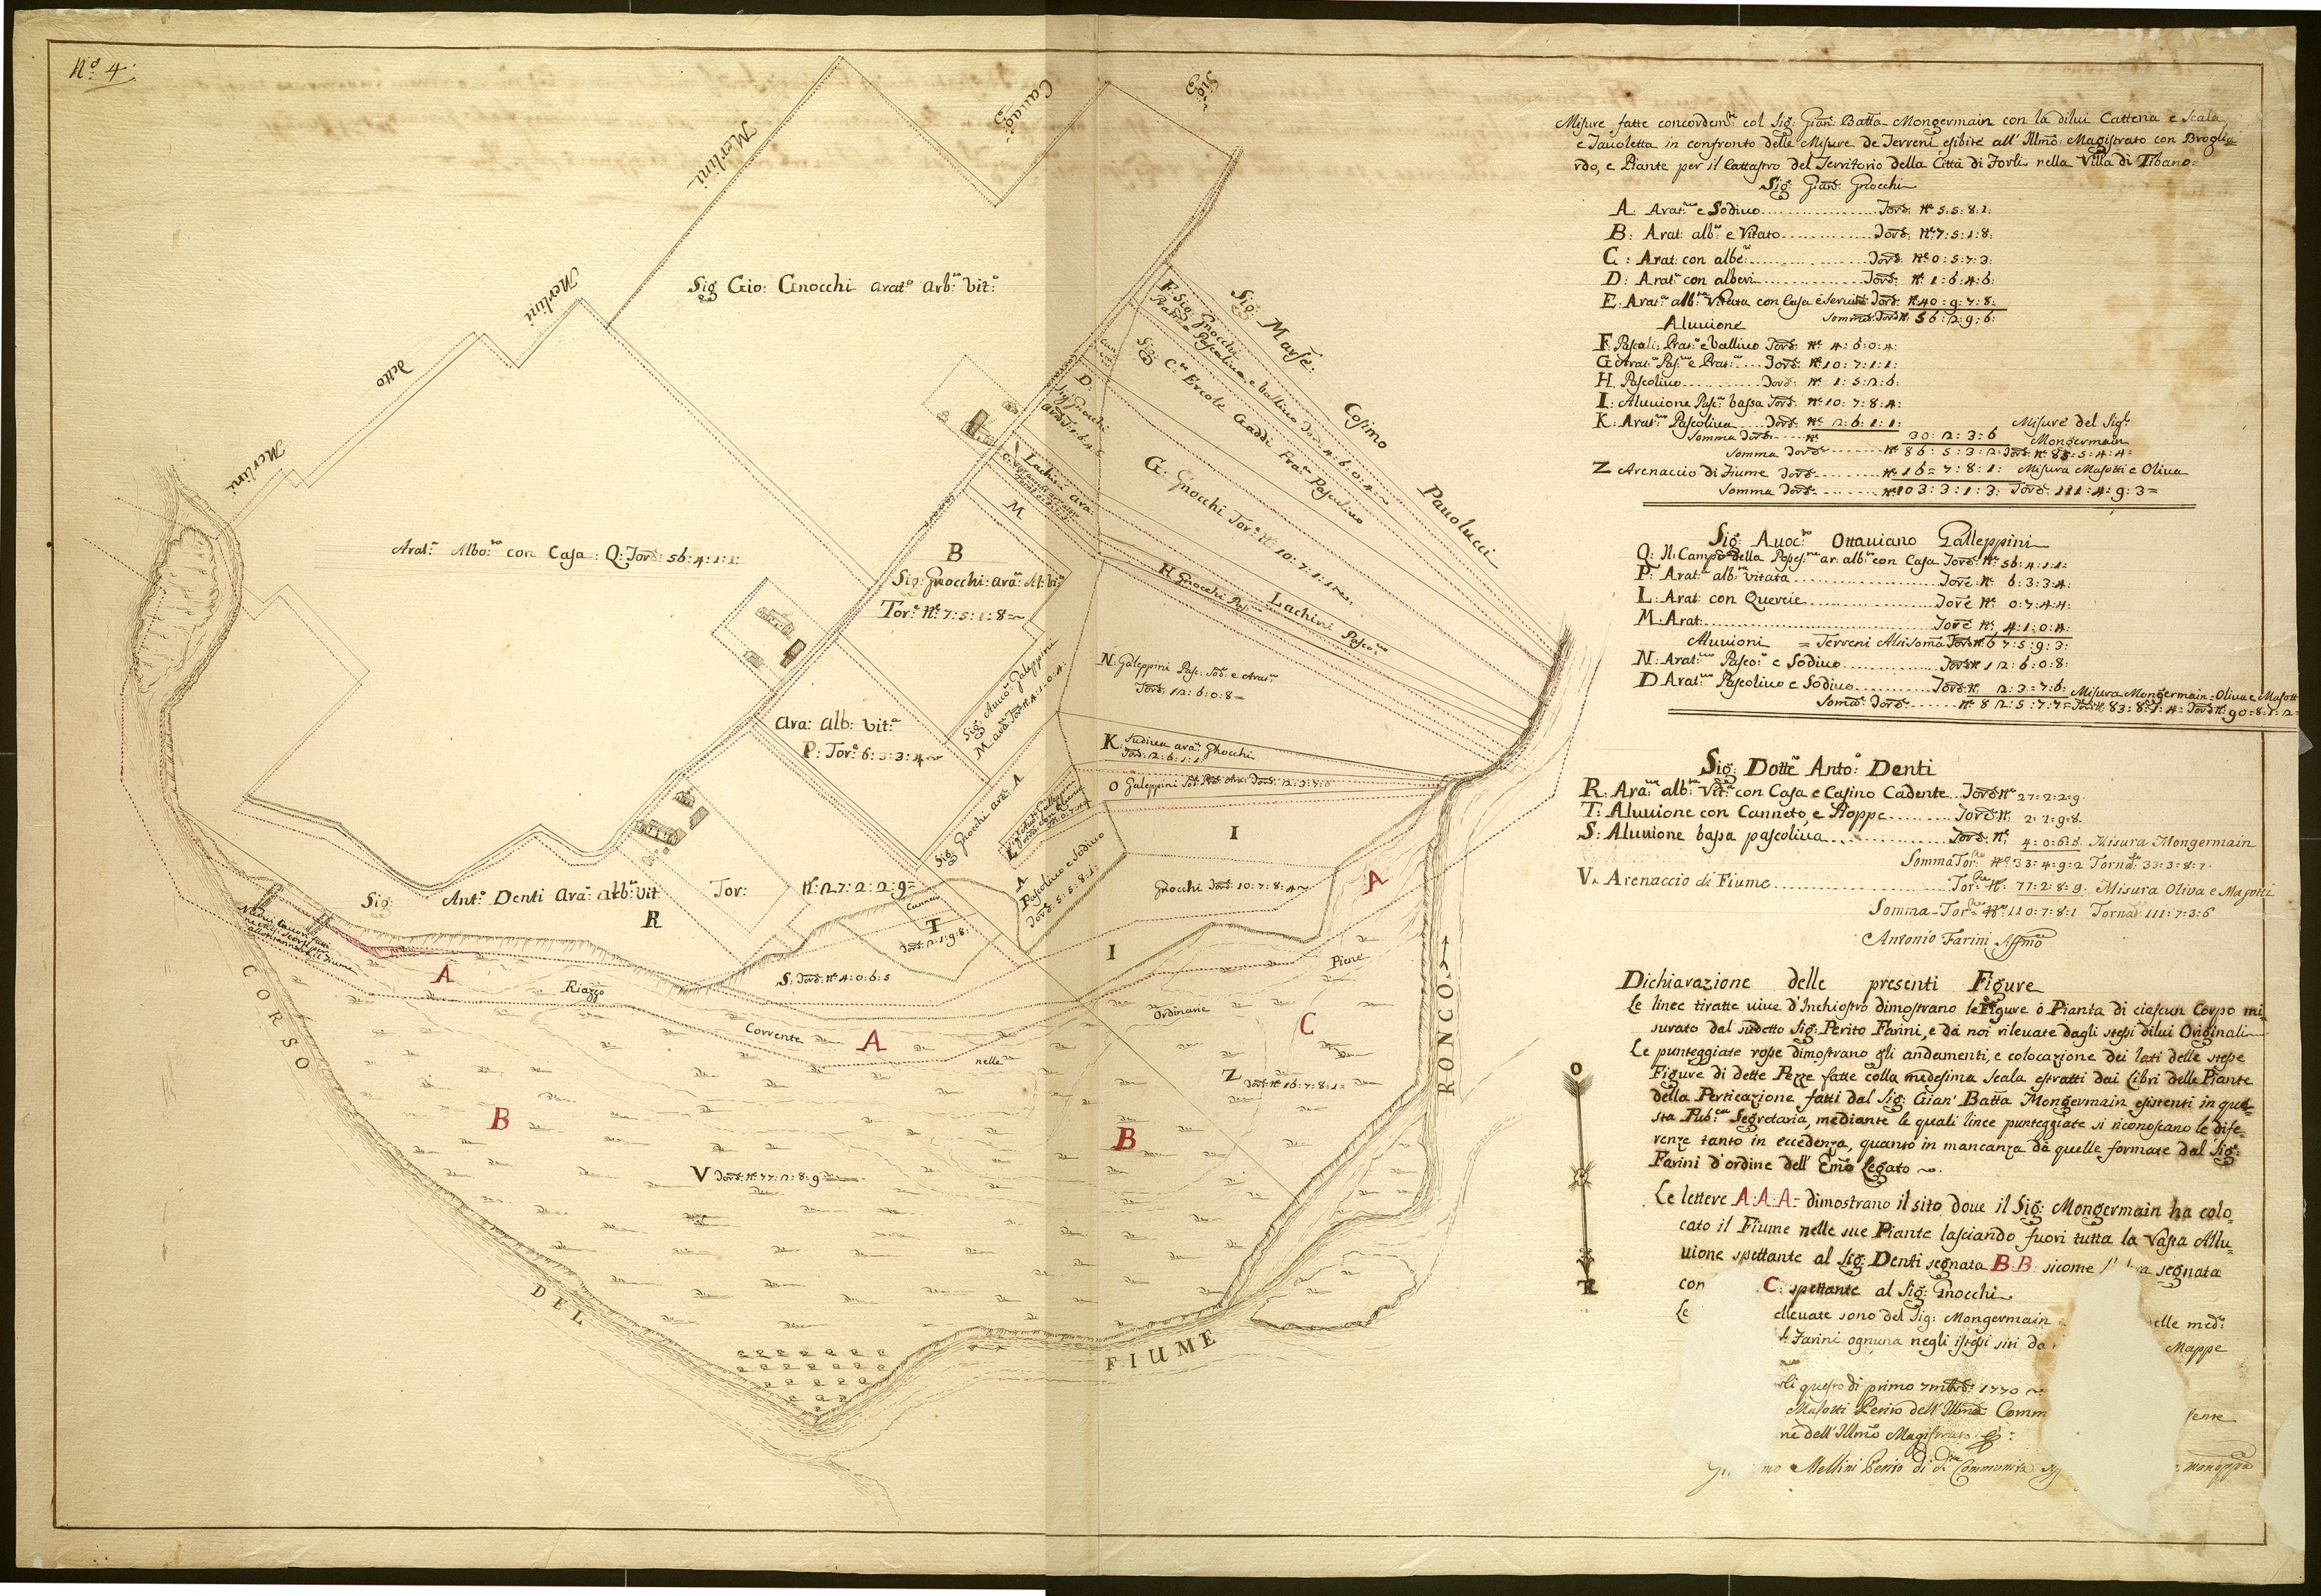 No. 4.
Merlini
Cauagi:
Sig:
Merlini
detto
Merlini
Sig Gio: Gnocchi arat.o Arb: Vit:
Arat: Albo: con Casa: Q: Tord: 56:4:1:1:
Sig: Marse: Cosimo Pauolucci
F: Sig: Gnocchi
Pratiua Pascoliua e Valliuo Tor: 4:6:0:4
Sig: C. Ercole Gaddi Prat: Pascoliuo
D:
Sig Gnocchi
G: Gnocchi Tor: N. 10:7:1:1
Lachini ara:
M
B
Sig: Gnocchi: ara: al: vi:
Tor: N. 7:5:1:8
H Gnocchi Pas:
Lachini Pasco:
N: Galeppini Pas: Sod: e Arat:
Tord: 12:6:0:8
Sig: Auuo: Galeppini
M: arat: Tor N. 4:1:0:4
Ara: alb: vit:
P: Tor: 6:3:3:4
K. Sudiua ara: Gnocchi
Tord: 12:6:1:1
O Galeppini
Sig: Gnocchi ara: A
L
I
A
Pascoliuo e Sodiuo
Tord: 5:5:8:1
Gnocchi Tord: 10:7:8:4
A
Sig: Ant: Denti Ara: Alb: Vit:
R
Tor: N: 27:2:2:9
Canneto
T
Tord: 2:1:9:8
I
S: Tord: N. 4:0:6:5
A
Riazzo
Corrente
A
nelle
Ordinarie
Piene
C
Z
Tord: N. 16:7:8:1
B
B
V Tord: N. 77:2:8:9
CORSO
DEL
FIUME
RONCO
O
R
Misure fatte concordem: col Sig: Gian: Batta Mongermain con la dilui Cattena e Scala,
e Tauoletta in confronto delle Misure de Terreni esibite all' Illmo: Magistrato con Broglia=
rdo, e Piante per il Cattastro del Territorio della Città di Forlì nella Villa di Tibano:
Sig: Gian: Gnocchi
A: Arat: e Sodiuo Tord: N. 5:5:8:1:
B: Arat: alb: e Vitato Tord: N. 7:5:1:8:
C: Arat: con albe: Tord: N. 0:5:7:3:
D: Arat: con alberi Tord: N. 1:6:4:6:
E: Arat: alb: Vitata con Casa e Tord: N. 40:9:7:8:
Aluuione Somma: Tord: N. 56:2:9:6:
F: Pascoli: Prat: e Valliuo Tord: N. 4:6:0:4:
G: Arat: Pas: e Prat: Tord: N. 10:7:1:1:
H. Pascoliuo Tord: N. 1:5:2:6:
I: Aluuione Pasc: bassa Tord: N. 10:7:8:4:
K: Arat: Pascoliua Tord: N. 2:6:1:1: Misure del Sig:
Somma Tord: N. 30:2:3:6 Mongermain
Somma Tord: N. 86:5:3:2: Tord: N. 85:5:4:4=
Z Arenaccio di Fiume Tord: N. 16=7:8:1: Misura Masotti e Oliua
Somma Tord: N. 103:3:1:3: Tord: 111:4:9:3=
Sig: Auoc: Ottauiano Galleppini
Q: Il Campo della Poses: ar: alb: con Casa Tord: N. 56:4:1:1:
P: Arat: alb: vitata Tord: N. 6:3:3:4:
L: Arat: con Quercie Tord: N. 0:7:4:4:
M: Arat: Tord: N. 4:1:0:4:
Aluuioni = Terreni Alti Soma Tord: N. 67:5:9:3:
N: Arat: Pasco: e Sodiuo Tord: N. 12:6:0:8:
D Arat: Pascoliuo e Sodiuo Tord: N. 2:3=7:6: Misura Mongermain=Oliua e Masotti
Soma: Tord: N. 82:5:7:7= Tord: N. 83:8:7:4= Tord: N. 90=8:7:2=
Sig: Dotte: Anto: Denti
R: Ara: alb: Vit: con Casa e Casino Cadente Tord: N. 27=2:2:9.
T: Aluuione con Canneto, e Pioppe Tord: N. 2:1:9:8.
S: Aluuione bassa pascoliua Tord: N. 4:0:6:5. Misura Mongermain
Somma Tor: N. 33=4=9:2 Torna: 33=3=8:7.
V. Arenaccio di Fiume Tor: N. 77:2:8:9. Misura Oliva e Masotti
Somma Tor: N. 110:7:8:1 Torna: 111:7:3:6
Antonio Farini Affmo
Dichiarazione delle presenti Figure
Le linee tiratte uiue d'Inchiostro dimostrano le Figure ò Pianta di ciascun Corpo mi=
surato dal sudetto Sig: Perito Farini, e da noi rileuate dagli stessi dilui Originali
Le punteggiate rosse dimostrano gli andamenti, e colocazione dei lati delle stesse
Figure di dette Pezze fatte colla medesima Scala estratti dai Libri delle Piante
della Perticazione fatti dal Sig: Gian' Batta Mongermain esistenti in que=
sta Pub: Segretaria, mediante le quali linee punteggiate si riconoscano le dife=
renze tanto in eccedenza, quanto in mancanza da quelle formate dal Sig:
Farini d'ordine dell' Emo Legato
Le lettere A:A:A= dimostrano il sito doue il Sig: Mongermain ha colo=
cato il Fiume nelle sue Piante lasciando fuori tutta la Vasta Allu=
uione spettante al Sig: Denti segnata B:B: sicome segnata
con C: spettante al Sig: Gnocchi
Le elleuate sono del Sig: Mongermain elle med:
Farini ognuna negli istessi siti da Mappe
questo di primo 7mbre 1770
Masotti Perito dell' Illma: Comm sente
ne dell' Illmo Magistrato
mo Mellini Perito di da: Communità